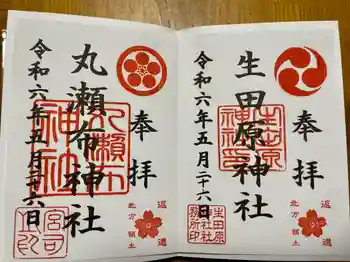 奉拝
生田原神社
令和六年五月二十六日
生田原
神社印
返還
北方領土
生田原
神社社
務所印
奉拝
丸瀬布神社
令和六年五月二十六日
丸瀬布
神社
返還
北方領土
宮司